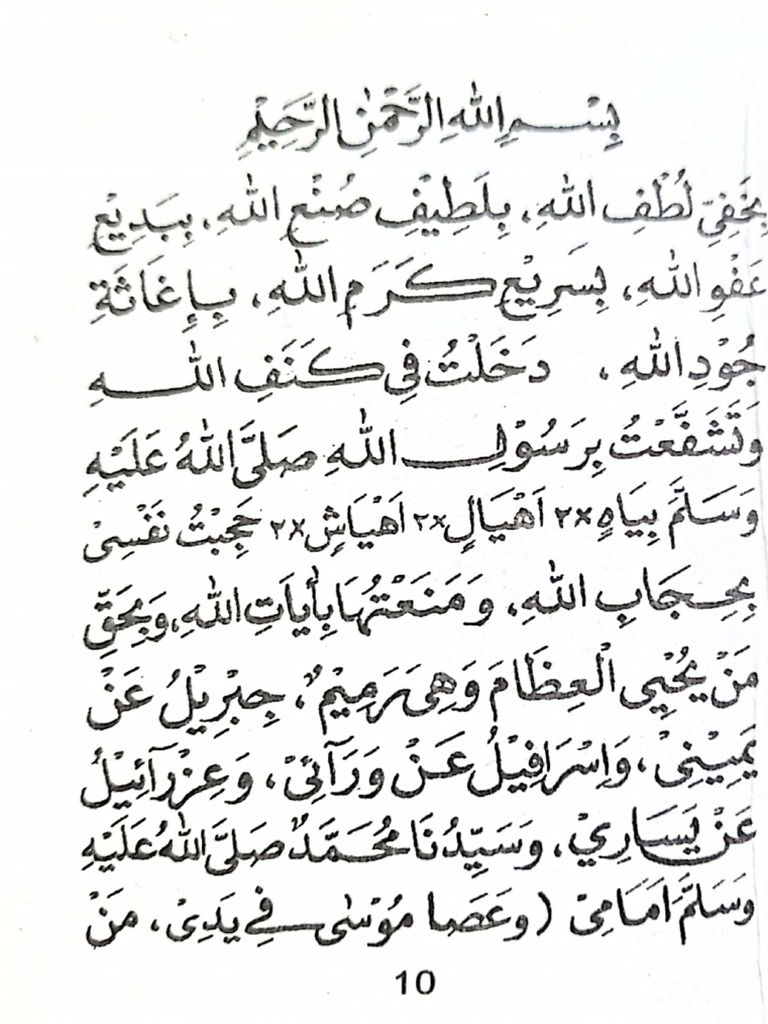 بِسْمِ اللهِ الرَّحْمٰنِ الرَّحِيْمِ
بِخَفِيِّ لُطْفِ اللهِ، بِلَطِيْفِ صُنْعِ اللهِ، بِبَدِيْعِ
عَفْوِ اللهِ، بِسَرِيْعِ كَرَمِ اللهِ، بِإِغَاثَةِ
جُوْدِ اللهِ، دَخَلْتُ فِي كَنَفِ اللهِ
وَتَشَفَّعْتُ بِرَسُوْلِ اللهِ صَلَّى اللهُ عَلَيْهِ
وَسَلَّمَ بِيَاهٍ ×٢ اَهْيَالٍ ×٢ اَهْيَاشٍ ×٢ حَجِبْتُ نَفْسِىْ
بِحِجَابِ اللهِ، وَمَنَعْتُهَا بِأٰيَاتِ اللهِ، وَبِحَقِّ
مَنْ يُحْيِى الْعِظَامَ وَهِىَ رَمِيْمٌ، جِبْرِيْلُ عَنْ
يَمِيْنِىْ، وَاِسْرَافِيْلُ عَنْ وَرَآئِىْ، وَعِزْرَآئِيْلُ
عَنْ يَسَارِيْ، وَسَيِّدُنَا مُحَمَّدٌ صَلَّى اللهُ عَلَيْهِ
وَسَلَّمَ اَمَامِىْ (وَعَصَا مُوْسٰى فِي يَدِىْ، مَنْ
10